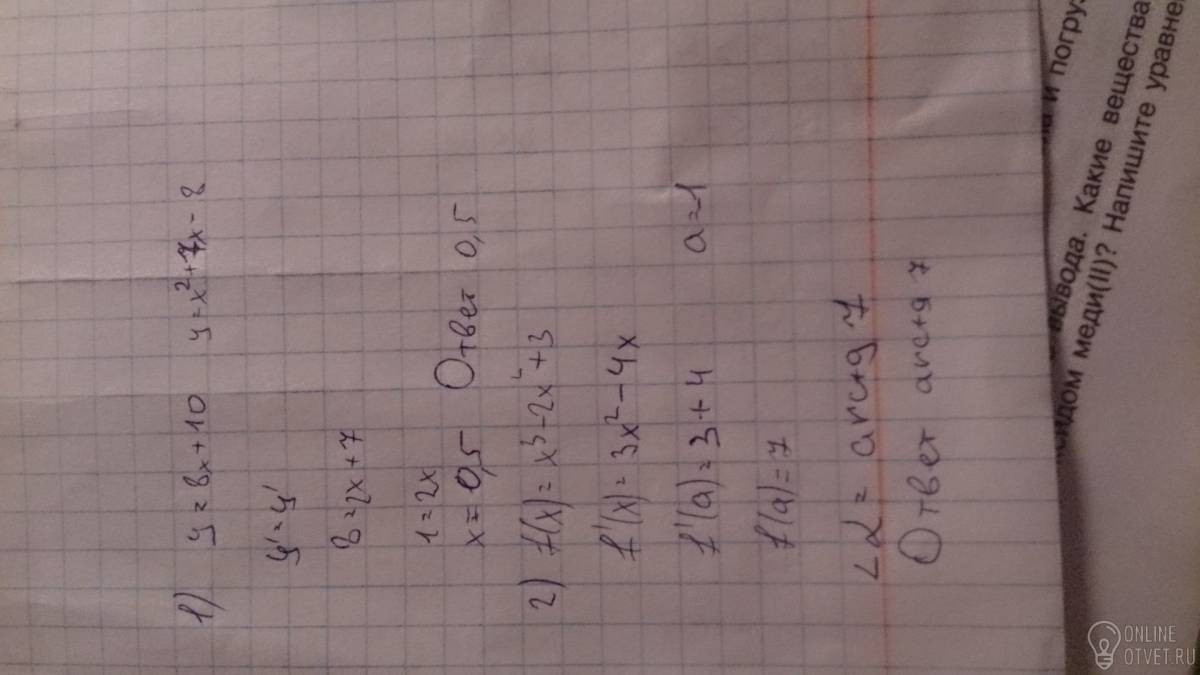 1) y = 8x+10 y = x²+7x-8
y' = y'
8 = 2x+7
1 = 2x
x = 0,5 Ответ 0,5
2) f(x) = x³-2x²+3
f'(x) = 3x²-4x
f'(a) = 3+4 a=-1
f'(a) = 7
∠α = arctg 7
Ответ arctg 7
и погру
вывода. Какие вещества
ксидом меди(II)? Напишите уравне
ONLINE
OTVET.RU